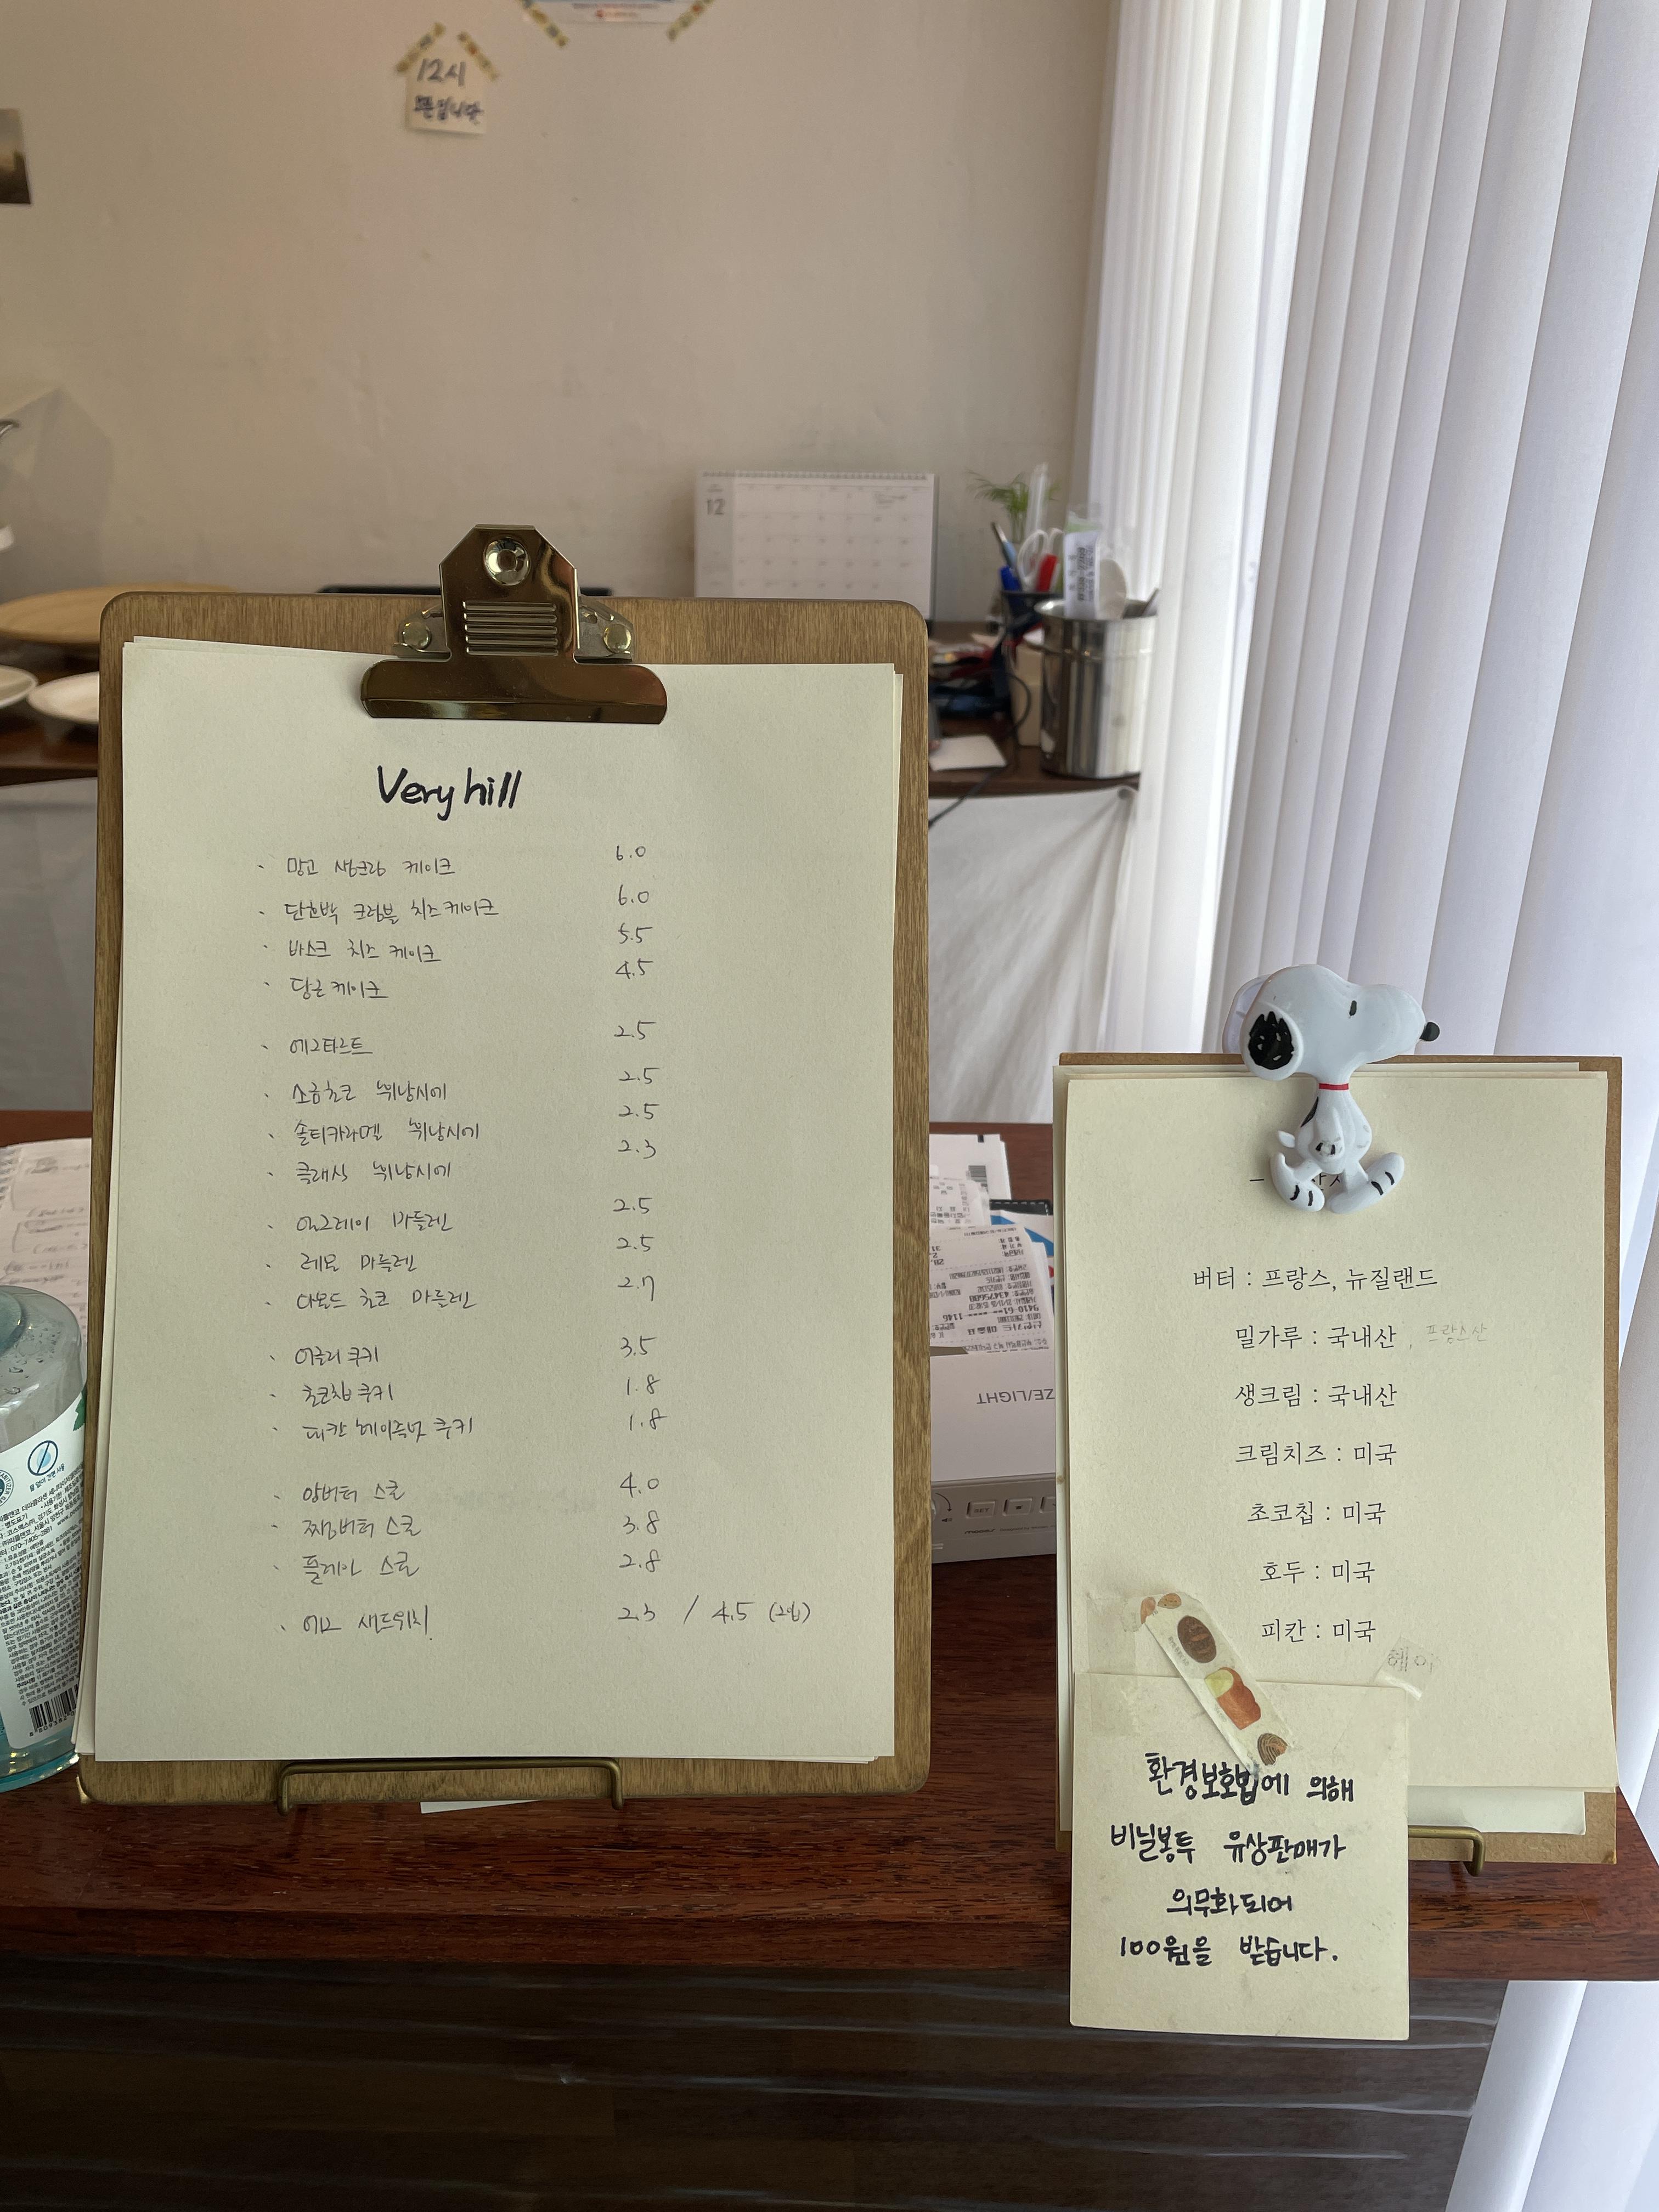 12시
오픈입니다
12
Very hill
· 망고 생크림 케이크 6.0
· 단호박 크럼블 치즈케이크 6.0
· 바스크 치즈 케이크 5.5
· 당근케이크 4.5
· 에그타르트 2.5
· 소금초코 휘낭시에 2.5
· 솔티카라멜 휘낭시에 2.5
· 클래식 휘낭시에 2.3
· 얼그레이 마들렌 2.5
· 레몬 마들렌 2.5
· 다몬드 초코 마들렌 2.7
· 어글리쿠키 3.5
· 초코칩쿠키 1.8
· 피칸 헤이즐넛 쿠키 1.8
· 앙버터 스콘 4.0
· 쨈버터 스콘 3.8
· 플레인 스콘 2.8
· 에그 샌드위치 2.3 / 4.5 (2개)
버터 : 프랑스, 뉴질랜드
밀가루 : 국내산 , 프랑스산
생크림 : 국내산
크림치즈 : 미국
초코칩 : 미국
호두 : 미국
피칸 : 미국
헤이
환경보호법에 의해
비닐봉투 유상판매가
의무화되어
100원을 받습니다.
ZE/LIGHT